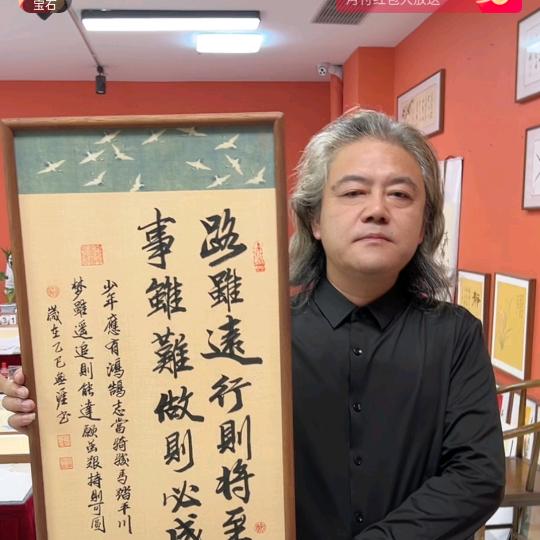 宝石
月付红包大放送
路雖遠行則將至
事雖難做則必成
少年應有鴻鵠志當騎駿馬踏平川
梦雖遥追則能達願虽艱持則可圓
歲在乙巳無涯书